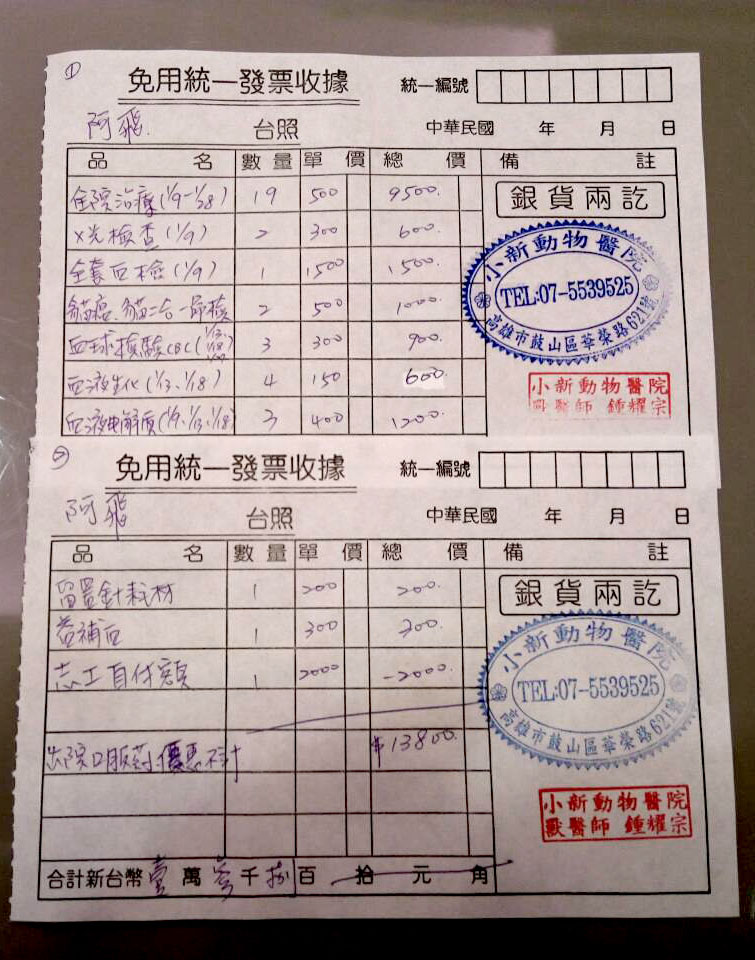 ①
免用統一發票收據 統一編號
阿飛 台照 中華民國 年 月 日
品名 數量 單價 總價 備註
住院治療(1/9-1/28) 19 500 9500.
X光檢查(1/9) 2 300 600.
全套血檢(1/9) 1 1500 1500.
貓瘟、貓二合一篩檢 2 500 1000.
血球檢驗CBC(1/13、1/18 3 300 900.
血液生化(1/13、1/18) 4 150 600.
血液電解質(1/9、1/13、1/18) 3 400 1200.
銀貨兩訖
小新動物醫院
TEL:07-5539525
高雄市鼓山區華榮路621號
小新動物醫院
獸醫師 鍾耀宗
②
免用統一發票收據 統一編號
阿飛 台照 中華民國 年 月 日
品名 數量 單價 總價 備註
留置針耗材 1 200 200.
益補血 1 300 300.
志工自付額 1 2000 -2000.
出院口服藥優惠不計 $13800.
合計新台幣壹萬參千捌百拾元角
銀貨兩訖
小新動物醫院
TEL:07-5539525
高雄市鼓山區華榮路621號
小新動物醫院
獸醫師 鍾耀宗